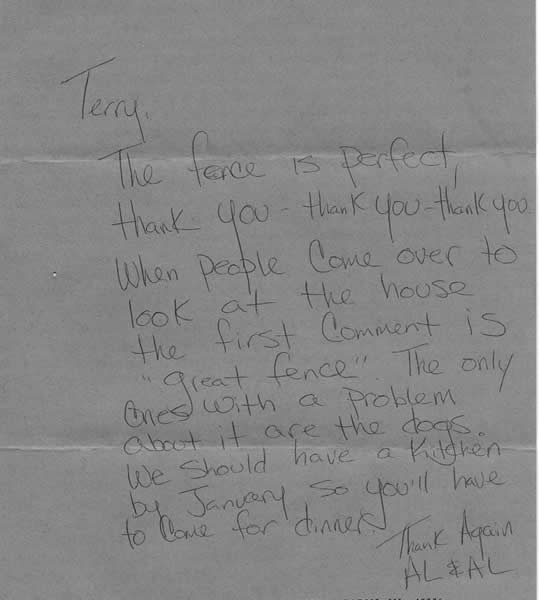 Terry,
The fence is perfect,
thank you - thank you - thank you
When people come over to
look at the house
the first comment is
"great fence". The only
ones with a problem
about it are the dogs.
We should have a kitchen
by January so you'll have
to come for dinner.
Thank Again
AL & AL